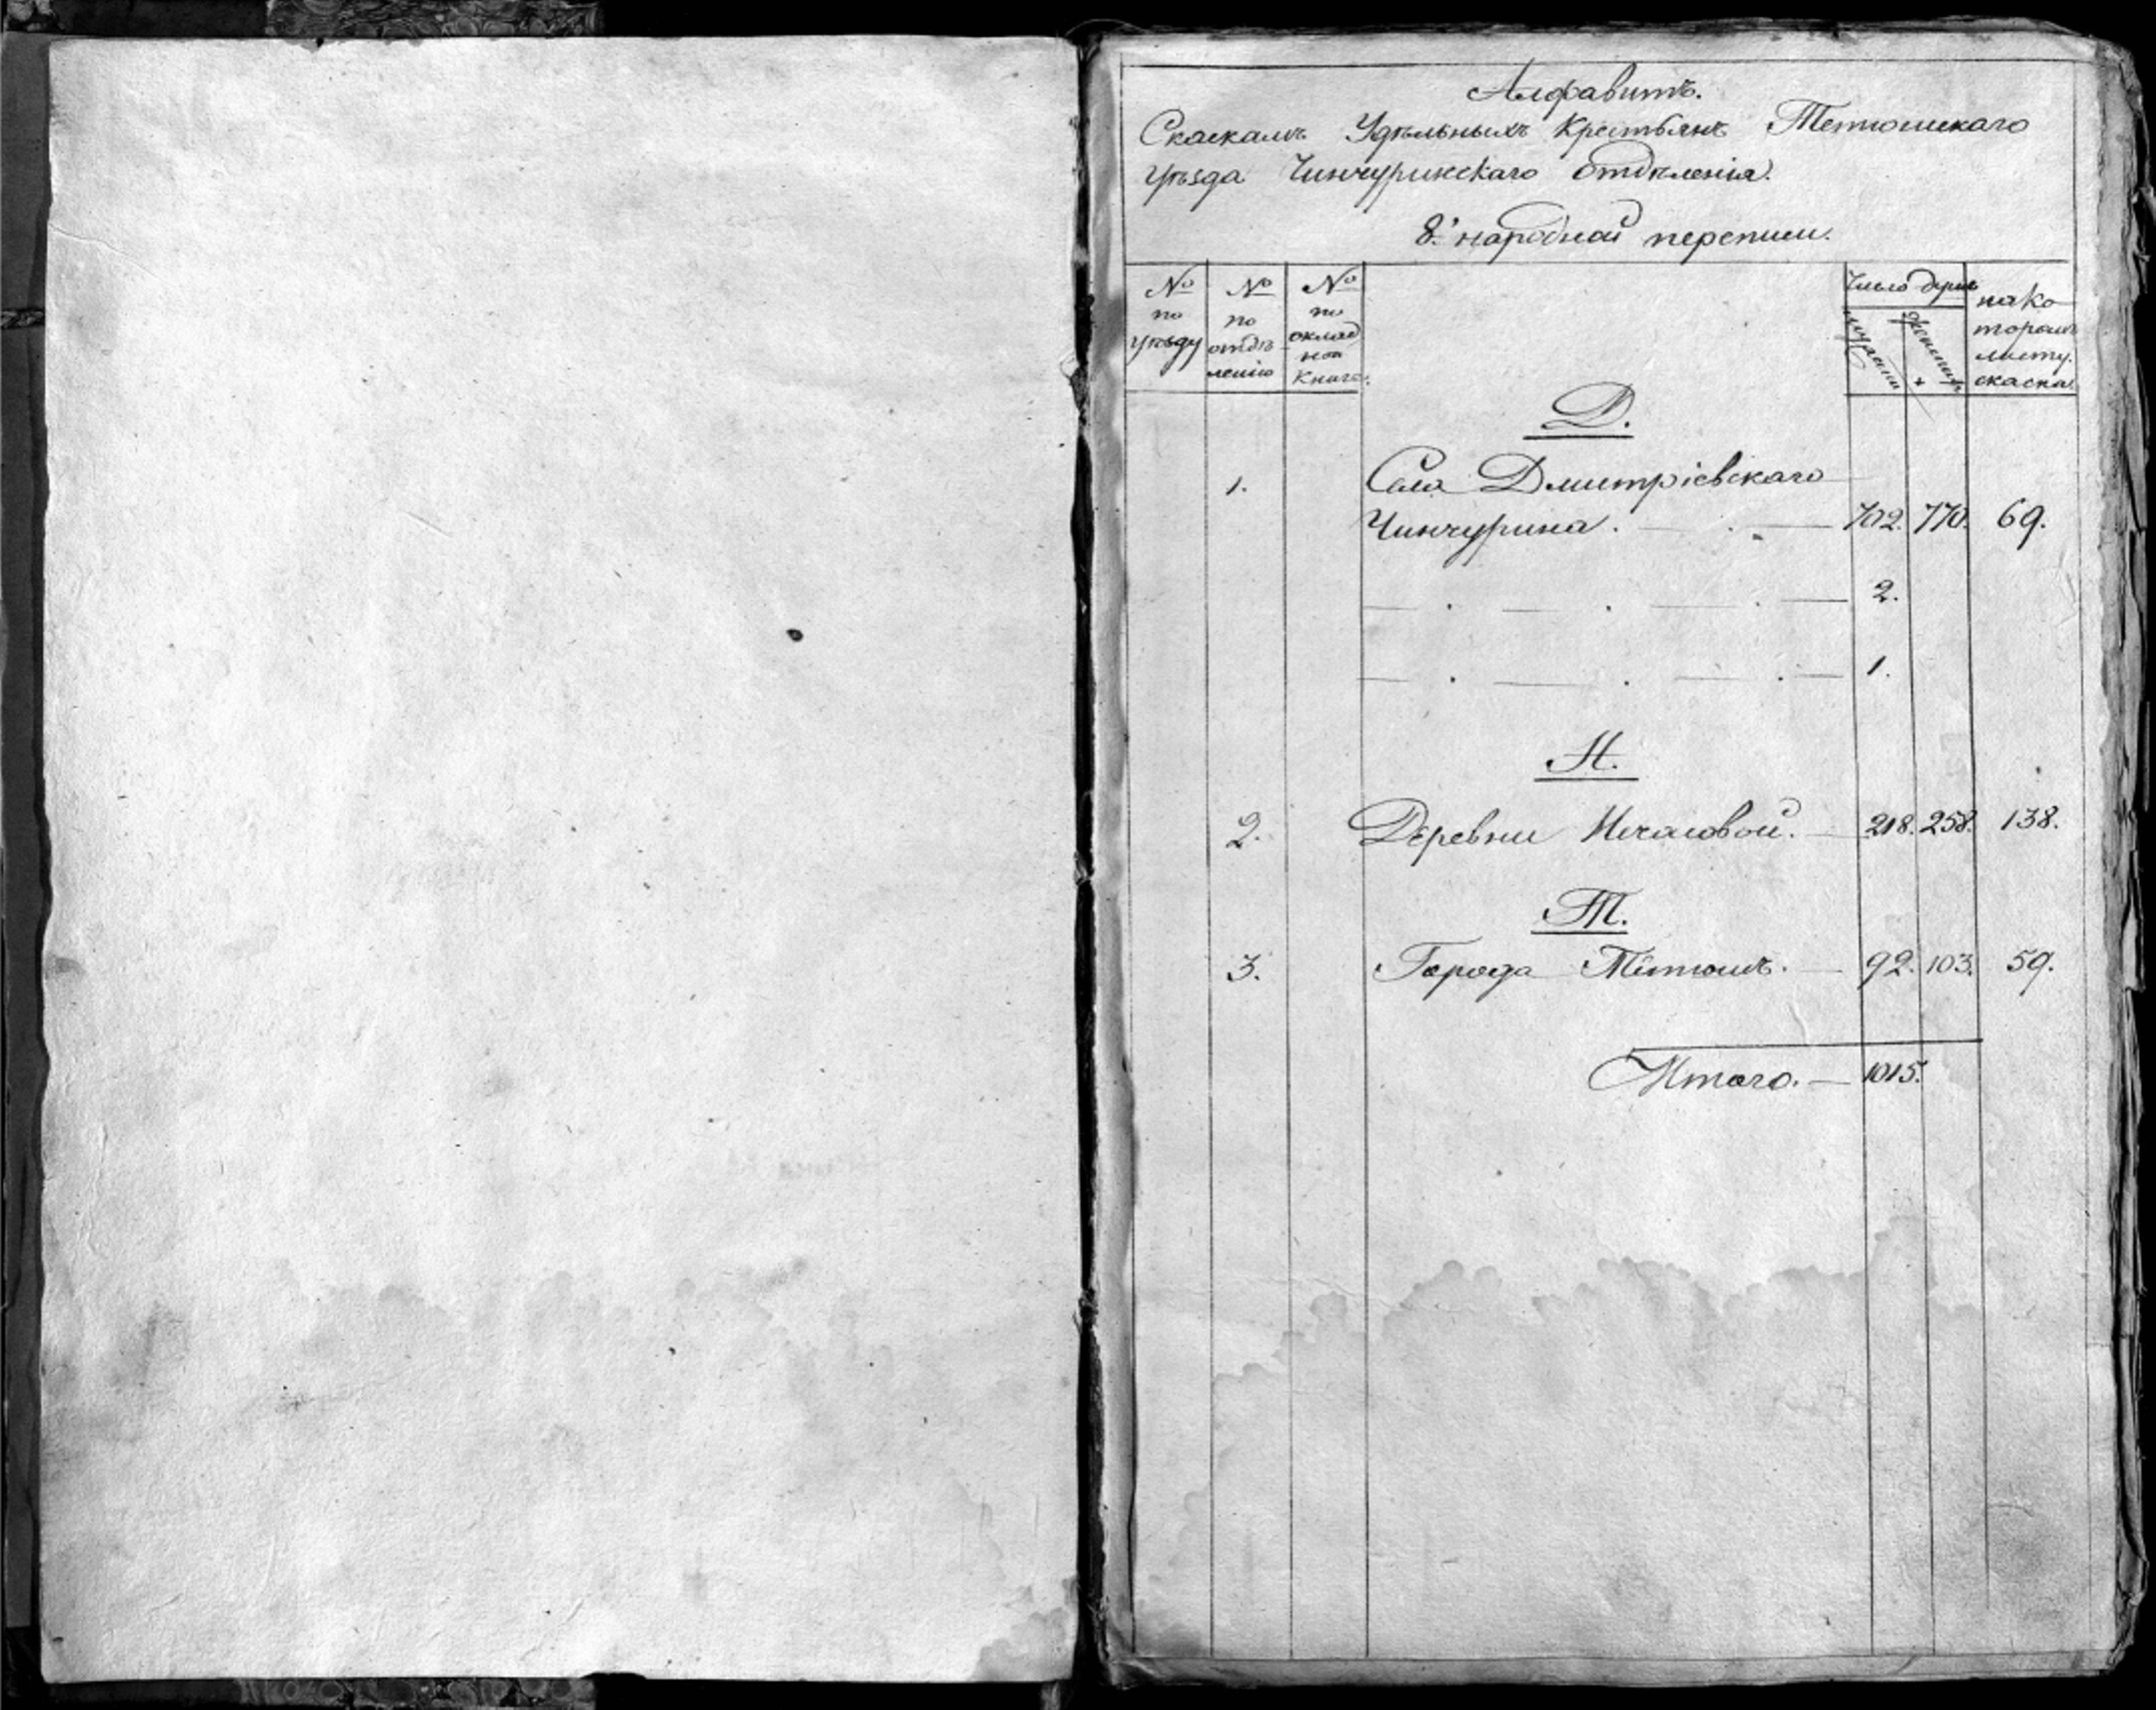 Алфавитъ.
Скаскамъ Удѣльныхъ Крестьянъ Тетюшскаго
уѣзда Чинчуринскаго отдѣленія.
8й народной переписи.
№ по уѣзду
№ по отдѣленію
№ по окладной книге.
Число душъ
мужеска
женска
на которомъ листу скаска.
Д.
1. Села Дмитріевскаго
Чинчурина. 702. 770. 69.
2.
1.
Н.
2. Деревни Нечасовой. 218. 258. 138.
Т.
3. Города Тетюшъ. 92. 103. 59.
Итого. 1015.